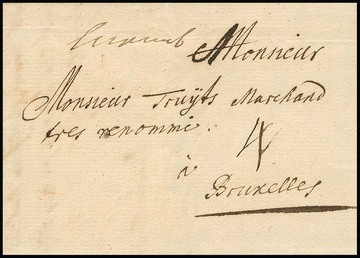 Monsieur
Monsieur Truÿts Marchand
tres renommé.
à
Bruxelles